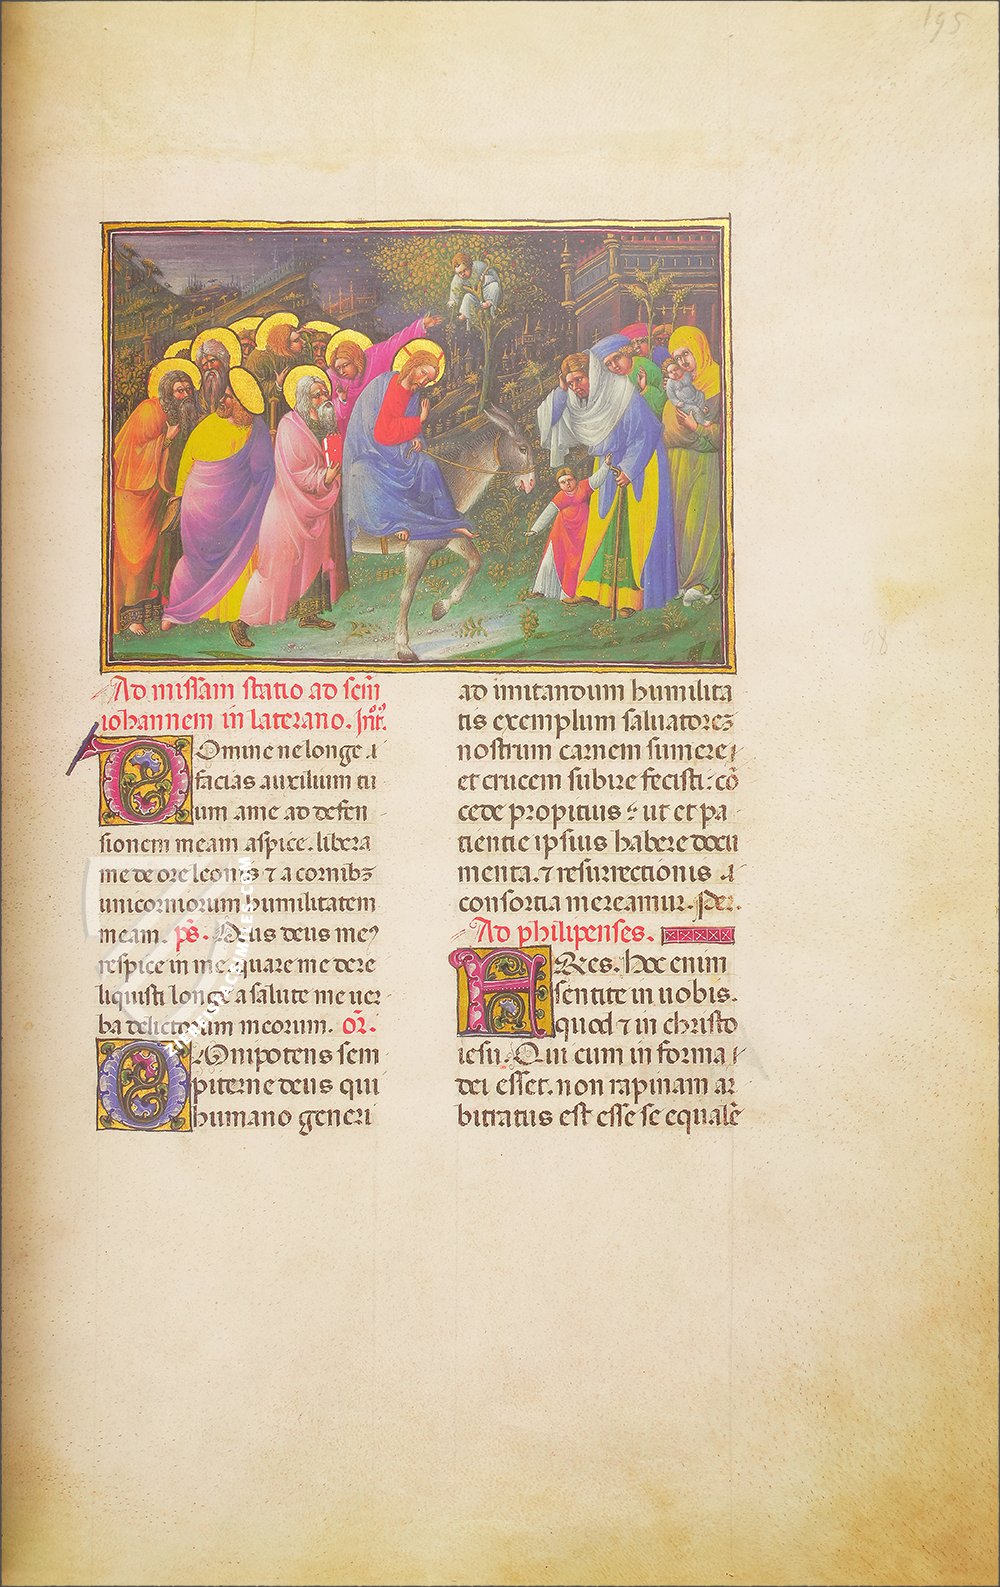 195
Ad missam statio ad scm̄
iohannem in laterano. Int̄.
Domine ne longe
facias auxilium tu
um a me ad defen
sionem meam aspice. libera
me de ore leonis ⁊ a cornibꝫ
unicorniorum humilitatem
meam. ps̄. Deus deus meꝰ
respice in me quare me dere
liquisti longe a salute me uer
ba delictorum meorum. or̄.
Omnipotens sem
piterne deus qui
humano generi
ad imitandum humilita
tis exemplum saluatorez
nostrum carnem sumere
et crucem subire fecisti: cō
cede propitius ut et pa
tientie ipsius habere docu
menta. ⁊ resurrectionis
consortia mereamur. Per.
Ad philipenses.
FRes. Hoc enim
sentite in uobis.
quod ⁊ in christo
iesu. Qui cum in forma
dei esset. non rapinam ar
bitratus est esse se equalē
98